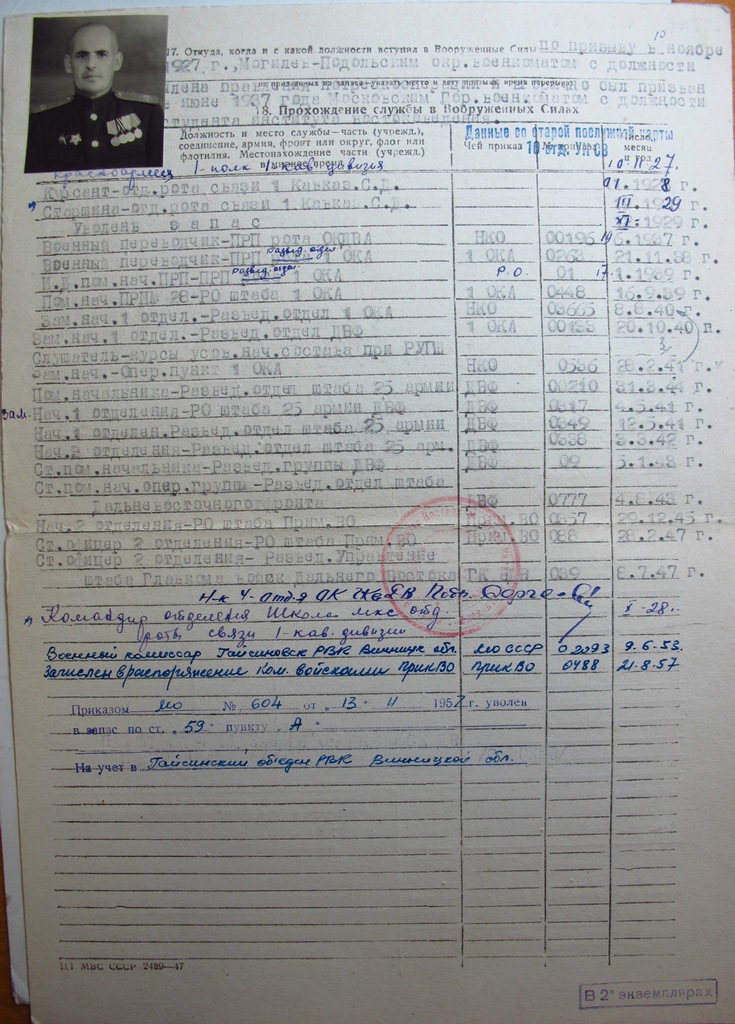 17. Откуда, когда и с какой должности вступил в Вооруженные Силы по призыву в ноябре
1927 г., Могилев-Подольским окр.военкоматом с должности
июне 1937 года Московским Гор.военкоматом с должности
18. Прохождение службы в Вооруженных Силах
студента института востоковедения.
Должность и место службы—часть (учрежд.),
соединение, армия, фронт или округ, флот или
флотилия. Местонахождение части (учрежд.)
в мирное время
Чей приказ
Данные со старой послужной карты
10 отд. УК СВ
число,
месяц
и год
красноармеец 1-полк 1-кав. дивизия 10-11-27.
Курсант-отд.рота связи 1 Кавказ.С.Д. 01.1928 г.
Старшина-отд.рота связи 1 Кавказ.С.Д. III.1929 г.
Уволен в запас XI.1929 г.
Военный переводчик-ПРП рота ОКДВА НКО 00196 6.1937 г.
Военный переводчик-ПРП развед.отдел 1 ОКА 1 ОКА 0263 21.11.38 г.
И.Д.пом.нач.ПРП-ПРП развед.отдел 1 ОКА Р.О. 01 17.1.1939 г.
Пом.нач.ПРП 28-РО штаба 1 ОКА 1 ОКА 0448 16.9.39 г.
Зам.нач.1 отдел.-Развед.отдел 1 ОКА НКО 03665 8.8.40 г.
Зам.нач.1 отдел.-Развед.отдел ДВФ 1 ОКА 00133 20.10.40 г.
Слушатель-курсы усов.нач.состава при РУГШ
Зам.нач.-Опер.пункт 1 ОКА НКО 0536 28.2.41 г.
Пом.начальника-Развед.отдел штаба 25 армии ДВФ 00210 31.3.41 г.
Зам. Нач.1 отделения-РО штаба 25 армии ДВФ ДВФ 0317 4.5.41 г.
Нач.1 отделен.Развед.отдел штаба 25 армии ДВФ 0349 12.5.41 г.
Нач.2 отделения-Развед.отдел штаба 25 арм. ДВФ 0398 3.5.42 г.
Ст.пом.начальника-Развед.группы ДВФ ДВФ 09 5.1.43 г.
Ст.пом.нач.опер.группы-Развед.отдел штаба
Дальневосточногофронта ДВФ 0777 4.8.43 г.
Нач.2 отделения-РО штаба Прим.ВО Прим.ВО 0857 29.12.45 г.
Ст.офицер 2 отделения-РО штаба Прим.ВО Прим.ВО 088 28.2.47 г.
Ст.офицер 2 отделения- Развед.Управление
штаба Главкома войск Дальнего Востока ГК 039 8.7.47 г.
Командир отделения Школа мкс отд. X-28г.
роты связи 1-кав. дивизии
Военный комиссар Гайсиновск РВК Винницк обл. МО СССР 02093 9.6.53.
Зачислен в распоряжение Ком. войсками ПрикВО ПрикВО 0488 21.8.57
Приказом МО № 604 от „13" 11 1957 г. уволен
в запас по ст. „59" пункту „А"
На учет в Гайсинский объедин РВК Винницкой обл.
МВС СССР 2489—47
В 2х экземплярах